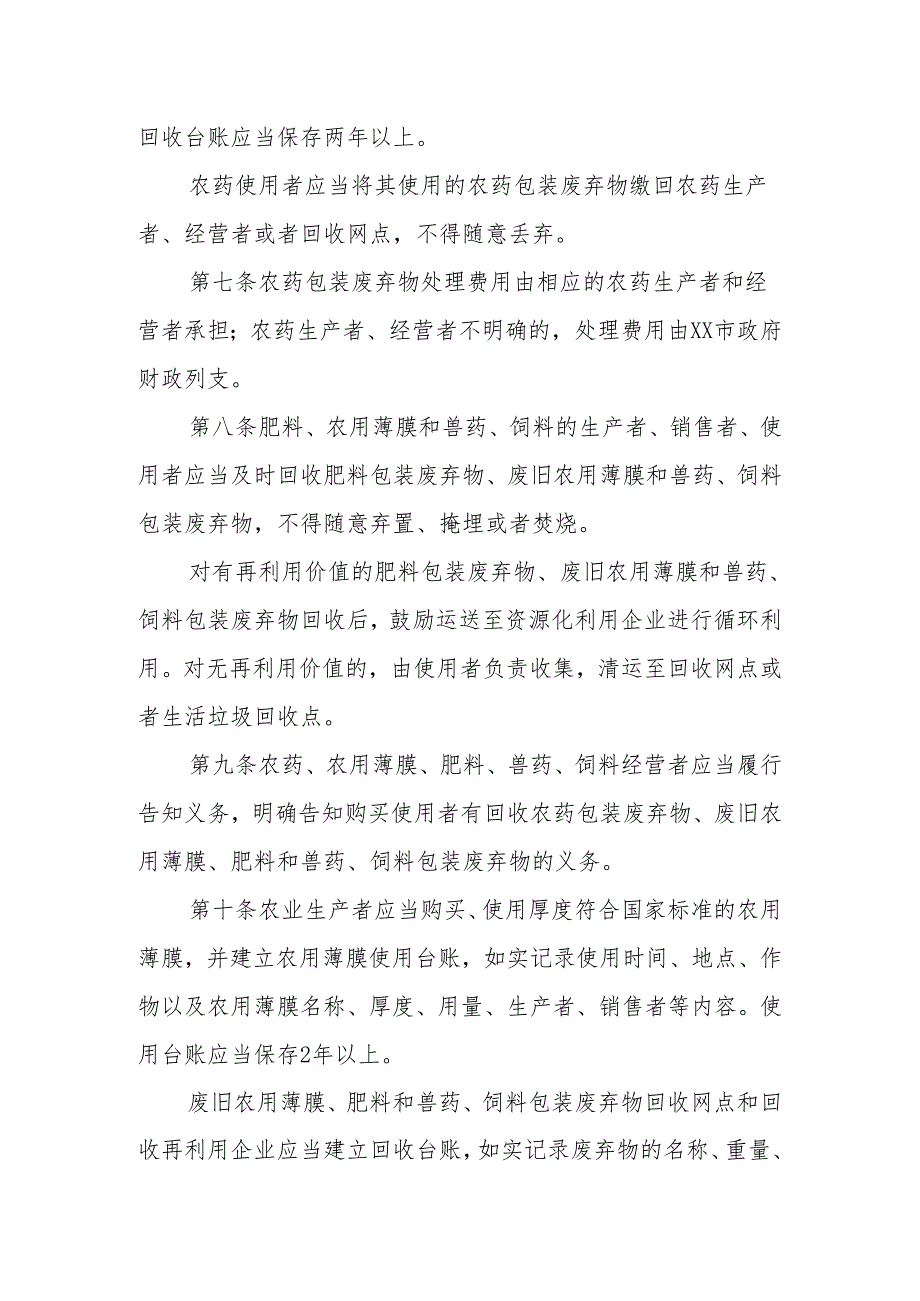 回收台账应当保存两年以上。
农药使用者应当将其使用的农药包装废弃物缴回农药生产
者、经营者或者回收网点，不得随意丢弃。
第七条农药包装废弃物处理费用由相应的农药生产者和经
营者承担；农药生产者、经营者不明确的，处理费用由XX市政府
财政列支。
第八条肥料、农用薄膜和兽药、饲料的生产者、销售者、使
用者应当及时回收肥料包装废弃物、废旧农用薄膜和兽药、饲料
包装废弃物，不得随意弃置、掩埋或者焚烧。
对有再利用价值的肥料包装废弃物、废旧农用薄膜和兽药、
饲料包装废弃物回收后，鼓励运送至资源化利用企业进行循环利
用。对无再利用价值的，由使用者负责收集，清运至回收网点或
者生活垃圾回收点。
第九条农药、农用薄膜、肥料、兽药、饲料经营者应当履行
告知义务，明确告知购买使用者有回收农药包装废弃物、废旧农
用薄膜、肥料和兽药、饲料包装废弃物的义务。
第十条农业生产者应当购买、使用厚度符合国家标准的农用
薄膜，并建立农用薄膜使用台账，如实记录使用时间、地点、作
物以及农用薄膜名称、厚度、用量、生产者、销售者等内容。使
用台账应当保存2年以上。
废旧农用薄膜、肥料和兽药、饲料包装废弃物回收网点和回
收再利用企业应当建立回收台账，如实记录废弃物的名称、重量、